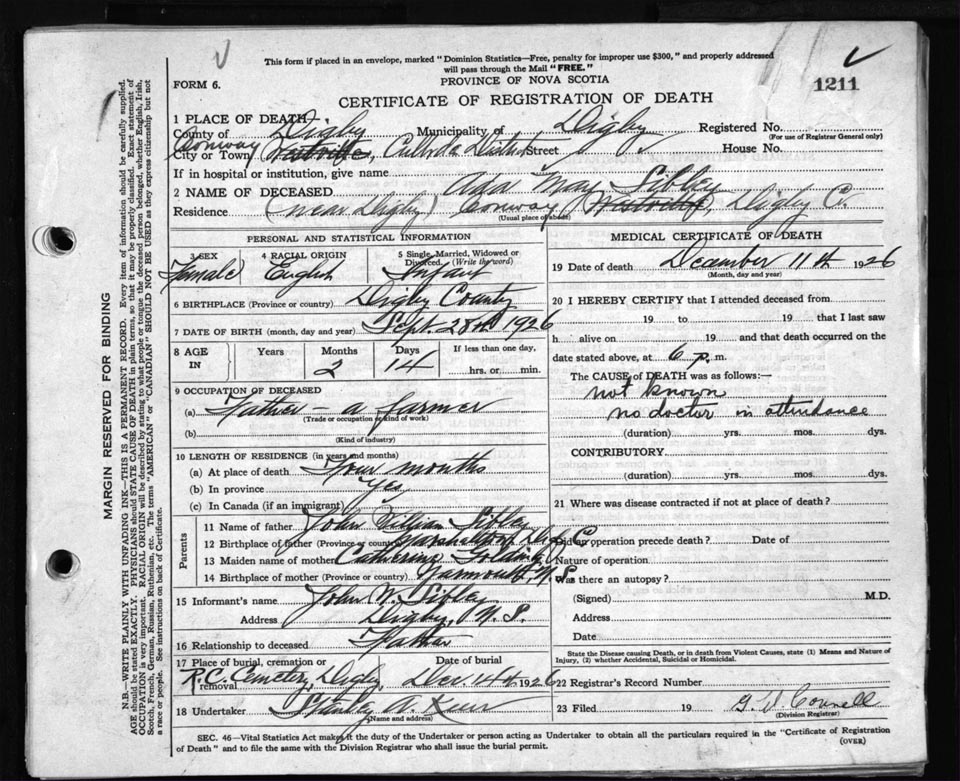 This form if placed in an envelope, marked "Dominion Statistics—Free, penalty for improper use $300," and properly addressed
will pass through the Mail "FREE."
FORM 6.
PROVINCE OF NOVA SCOTIA
1211
CERTIFICATE OF REGISTRATION OF DEATH
1 PLACE OF DEATH
County of Digby Municipality of Digby Registered No.
(For use of Registrar General only)
Conway
City or Town Westville, Culloda District Street House No.
If in hospital or institution, give name
2 NAME OF DECEASED Ada May Sibley
Residence (near Digby) Conway (Westville), Digby Co.
(Usual place of abode)
PERSONAL AND STATISTICAL INFORMATION
3 SEX 4 RACIAL ORIGIN 5 Single, Married, Widowed or
Divorced. (Write the word)
Female English Infant
6 BIRTHPLACE (Province or country) Digby County
7 DATE OF BIRTH (month, day and year) Sept. 28th 1926
8 AGE IN Years Months Days If less than one day,
2 14 hrs. or min.
9 OCCUPATION OF DECEASED
(a) Father - a farmer
(Trade or occupation or kind of work)
(b)
(Kind of industry)
10 LENGTH OF RESIDENCE (in years and months)
(a) At place of death Four months
(b) In province Yes
(c) In Canada (if an immigrant)
Parents
11 Name of father John William Sibley
12 Birthplace of father (Province or country) Marshalltown Digby Co.
13 Maiden name of mother Catherine
14 Birthplace of mother (Province or country) Yarmouth, N.S.
15 Informant's name John W. Sibley
Address Digby, N.S.
16 Relationship to deceased Father
17 Place of burial, cremation or removal Date of burial
R.C. Cemetery, Digby Dec. 14th 1926
18 Undertaker Stanley W.
(Name and address)
MEDICAL CERTIFICATE OF DEATH
19 Date of death December 11th 1926
(Month, day and year)
20 I HEREBY CERTIFY that I attended deceased from
19 to 19 that I last saw
h alive on 19 and that death occurred on the
date stated above, at 6 p. m.
The CAUSE of DEATH was as follows:—
not known
no doctor in attendance
(duration) yrs. mos. dys.
CONTRIBUTORY
(duration) yrs. mos. dys.
21 Where was disease contracted if not at place of death?
Did an operation precede death? Date of
Nature of operation
Was there an autopsy?
(Signed) M.D.
Address
Date
State the Disease causing Death, or in death from Violent Causes, state (1) Means and Nature of
Injury, (2) whether Accidental, Suicidal or Homicidal.
22 Registrar's Record Number
23 Filed 19 Connell
(Division Registrar)
SEC. 46—Vital Statistics Act makes it the duty of the Undertaker or person acting as Undertaker to obtain all the particulars required in the "Certificate of Registration
of Death" and to file the same with the Division Registrar who shall issue the burial permit.
(OVER)
MARGIN RESERVED FOR BINDING
N.B.—WRITE PLAINLY WITH UNFADING INK—THIS IS A PERMANENT RECORD. Every item of information should be carefully supplied.
AGE should be stated EXACTLY. PHYSICIANS should STATE CAUSE OF DEATH in plain terms, so that it may be properly classified. Exact statement of
OCCUPATION is very important. RACIAL ORIGIN will be described by stating to what people or tongue the deceased person belonged, whether English, Irish,
Scotch, French, German, Russian, Ruthenian, etc. The terms "AMERICAN" or "CANADIAN" SHOULD NOT BE USED as they express citizenship but not
a race or people. See instructions on back of Certificate.